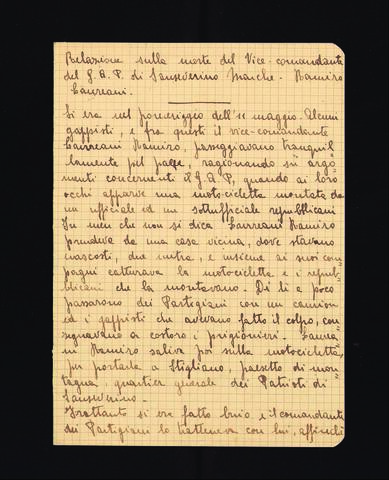 Relazione sulla morte del Vice-comandante
del G.A.P. di Sanseverino Marche - Ramiro
Laureani.
Si era nel pomeriggio dell'11 maggio. Alcuni
gappisti, e fra questi il vice-comandante
Laureani Ramiro, passeggiavano tranquil
lamente pel paese, ragionando su argo=
menti concernenti il G.A.P., quando ai loro
occhi apparve una motocicletta montata da
un ufficiale ed un sottufficiale repubblicani
In men che non si dica Laureani Ramiro
prendeva da una casa vicina, dove stavano
nascosti, due mitra, e insieme ai suoi com=
pagni catturava la motocicletta e i repub=
blicani che la montavano. Di lì a poco
passarono dei Partigiani con un camion
ed i gappisti che avevano fatto il colpo, con
segnavano a costoro i prigionieri. Laurea=
ni Ramiro saliva poi sulla motocicletta,
per portarla a Stigliano, paesetto di mon=
tagna, quartier generale dei Patrioti di
Sanseverino.
Frattanto si era fatto buio e il comandante
dei Partigiani lo tratteneva con lui, affinché